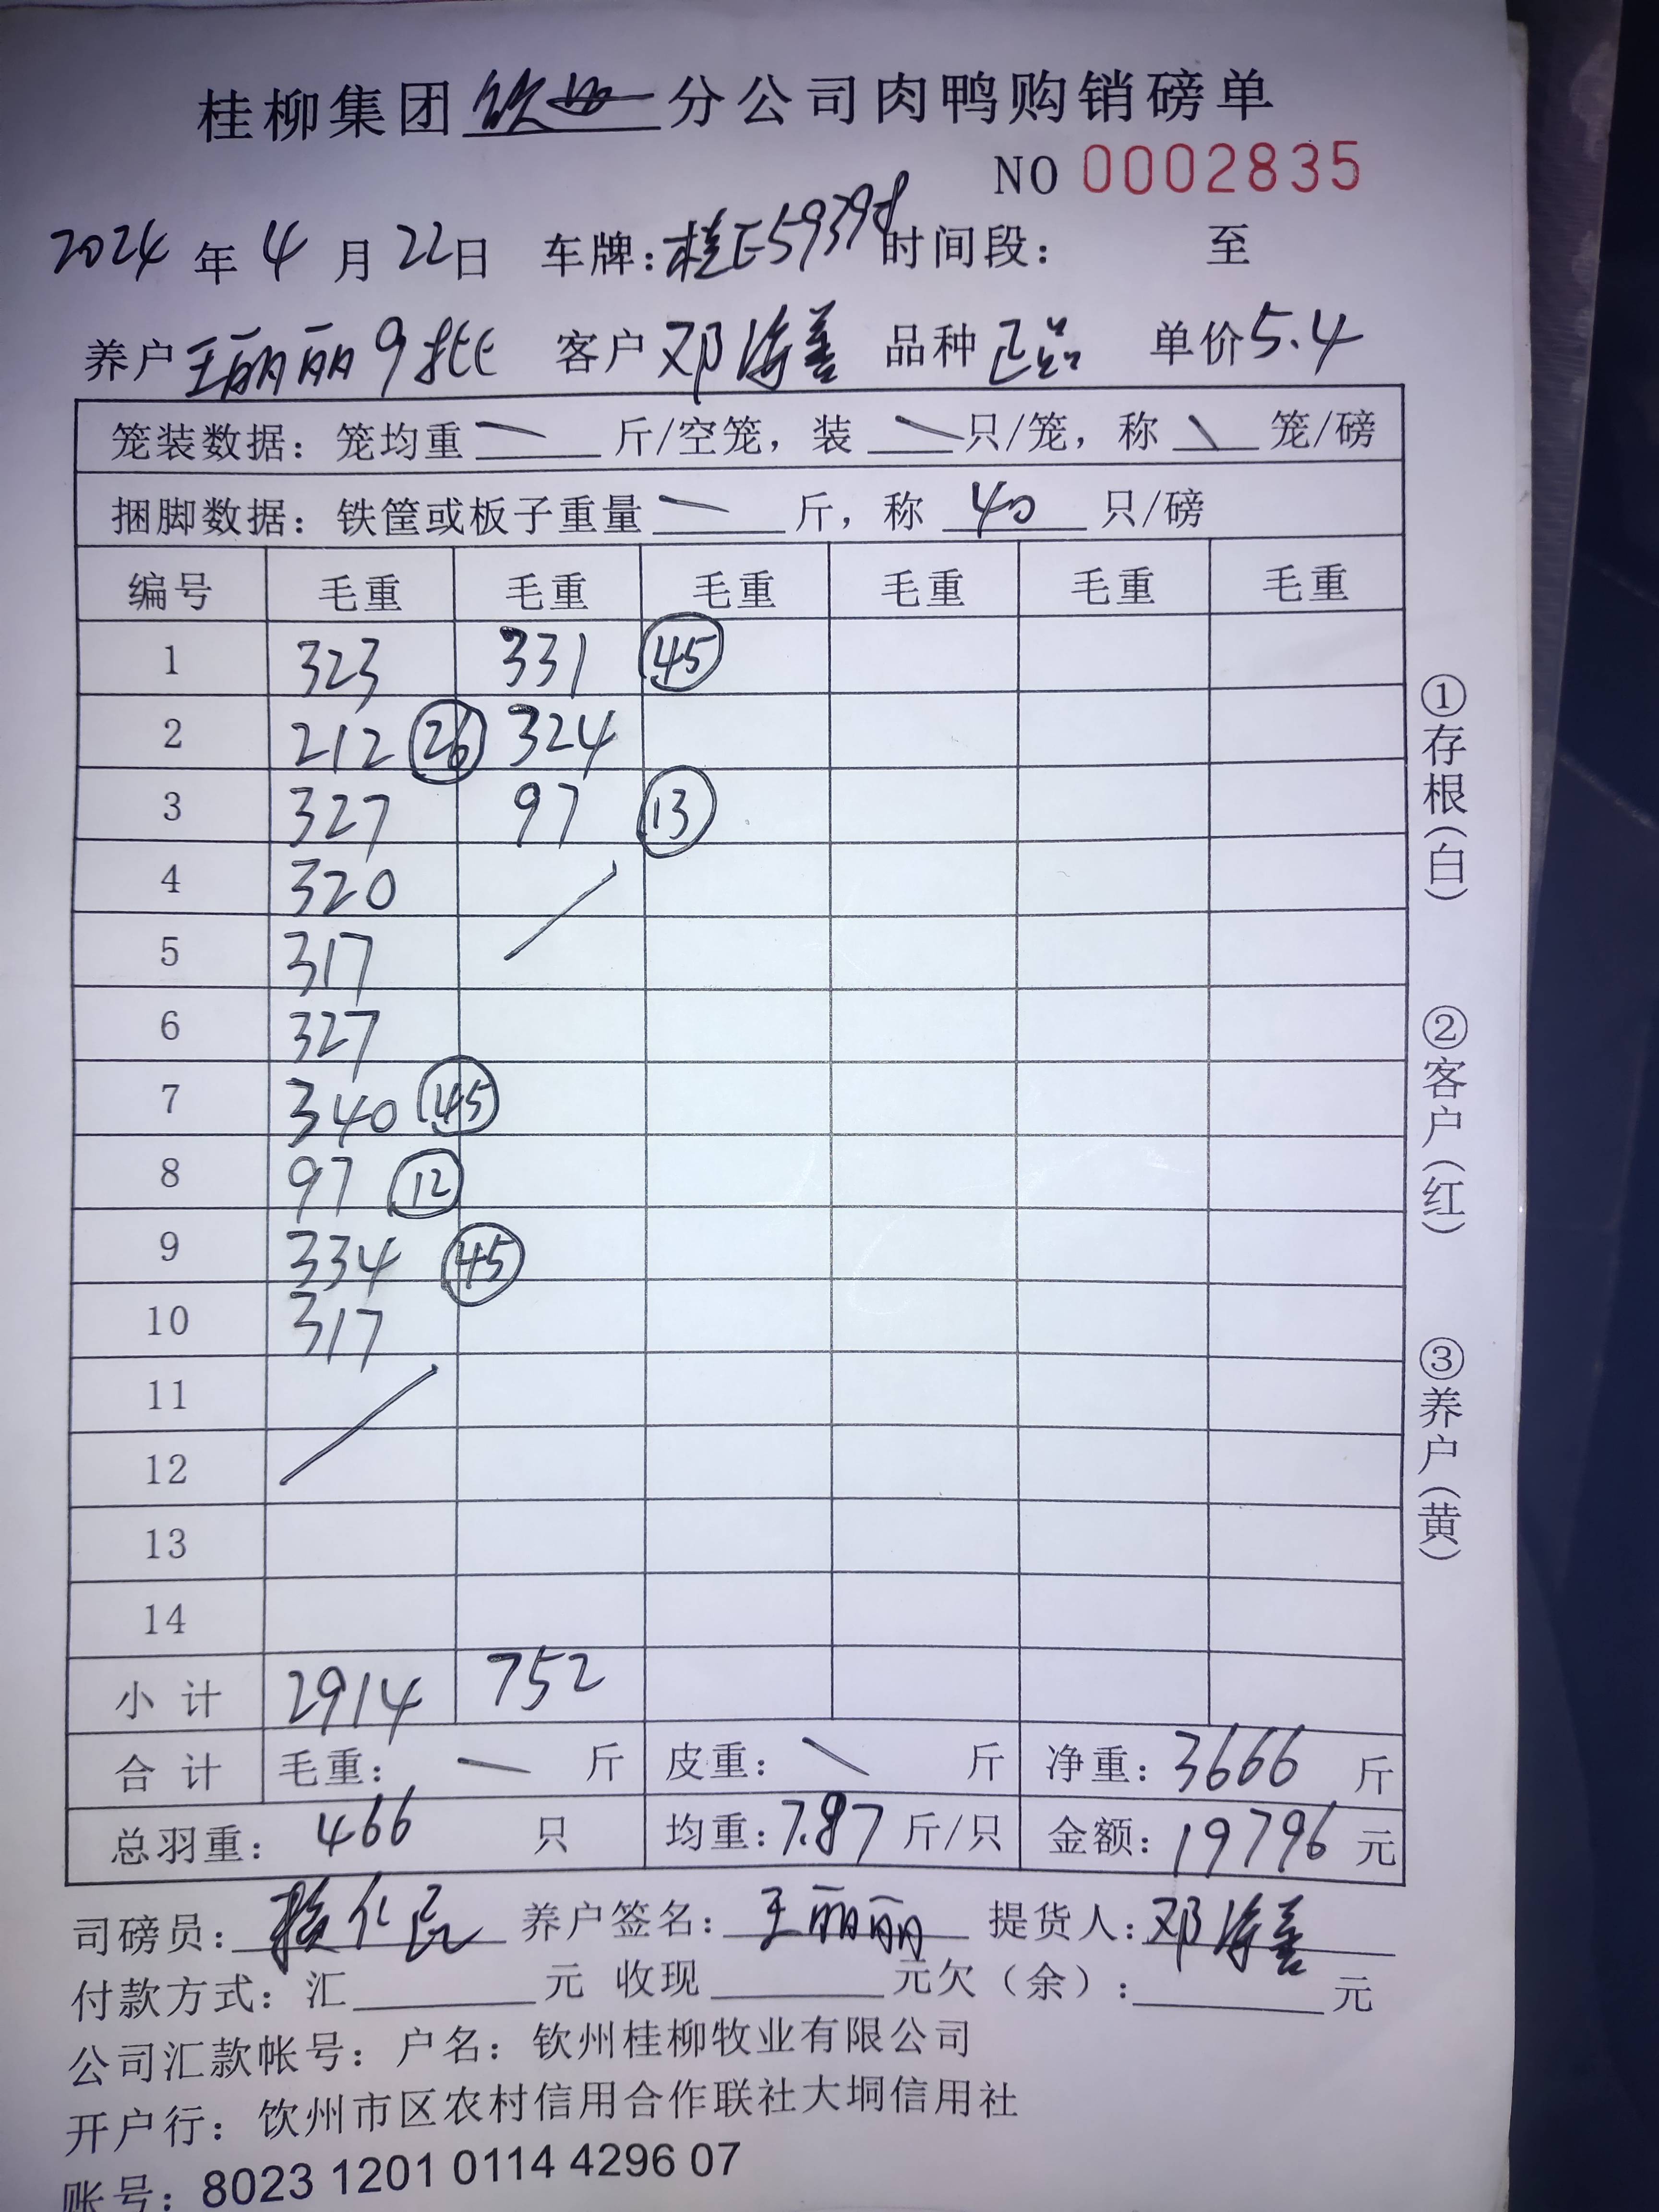 桂柳集团 钦州 分公司肉鸭购销磅单
NO 0002835
2024 年 4 月 22 日 车牌: 桂E5939 时间段: 至
养户 王丽丽9批 客户 邓海善 品种 正品 单价 5.4
笼装数据: 笼均重 — 斤/空笼, 装 — 只/笼, 称 \ 笼/磅
捆脚数据: 铁筐或板子重量 — 斤, 称 40 只/磅
编号 毛重 毛重 毛重 毛重 毛重 毛重
1 323 331 ㊺
2 212 ㉖ 324
3 327 97 ⑬
4 320
5 317
6 327
7 340 ㊺
8 97 ⑫
9 334 ㊺
10 317
11
12
13
14
小计 2914 752
合计 毛重: — 斤 皮重: \ 斤 净重: 3666 斤
总羽重: 466 只 均重: 7.87 斤/只 金额: 19796 元
司磅员: 养户签名: 王丽丽 提货人: 邓海善
付款方式: 汇 元 收现 元欠(余): 元
公司汇款帐号: 户名: 钦州桂柳牧业有限公司
开户行: 钦州市区农村信用合作联社大垌信用社
账号: 8023 1201 0114 4296 07
①存根(白)
②客户(红)
③养户(黄)